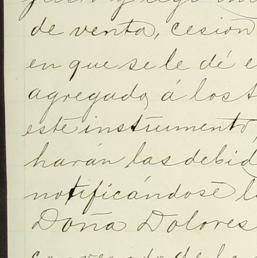 de venta, cesión
en que se le dé e
agregado, á los t
este instrumento,
harán las debid
notificándose l
Doña Dolores